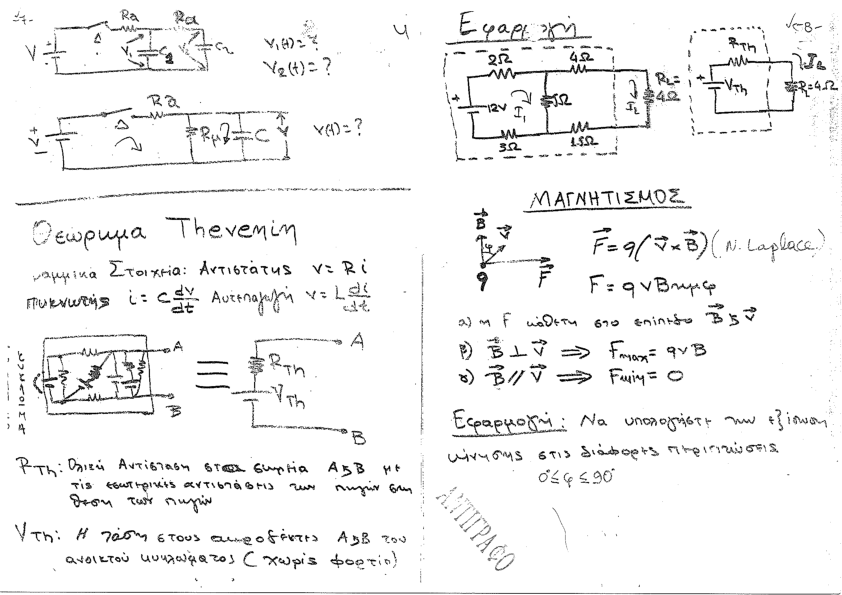 Ra Ra
V Δ V₁ C₂ V₂ C₂
V₁(t)=?
V₂(t)=?
4
Ra
V Δ Rμ C V
V(t)=?
Θεώρημα Thevenin
Γραμμικά Στοιχεία: Αντιστάτης V=Ri
πυκνωτής i= C dv/dt Αυτεπαγωγή V= L di/dt
ΚΥΚΛΩΜΑ
A
B
≡
A
R_Th
V_Th
B
R_Th: Ολική Αντίσταση στα σημεία A,B με
τις εσωτερικές αντιστάσεις των πηγών στη
θέση των πηγών
V_Th: Η τάση στους ακροδέκτες A,B του
ανοικτού κυκλώματος (χωρίς φορτίο)
Εφαρμογή
-8-
2Ω 4Ω
12V I₁ 5Ω I_L R_L=4Ω
3Ω 1.5Ω
R_Th
V_Th
I_L
R_L=4Ω
ΜΑΓΝΗΤΙΣΜΟΣ
B⃗ V⃗
φ
q F⃗
F⃗=q(V⃗×B⃗) (N. Laplace)
F=qVBημφ
α) η F κάθετη στο επίπεδο B⃗,V⃗
β) B⃗ ⊥ V⃗ ⟹ Fmax=qVB
γ) B⃗ // V⃗ ⟹ Fmin=0
Εφαρμογή: Να υπολογήστε την εξίσωση
κίνησης στις διάφορες περιπτώσεις
0°≤φ≤90°
ΑΝΤΙΓΡΑΦΟ